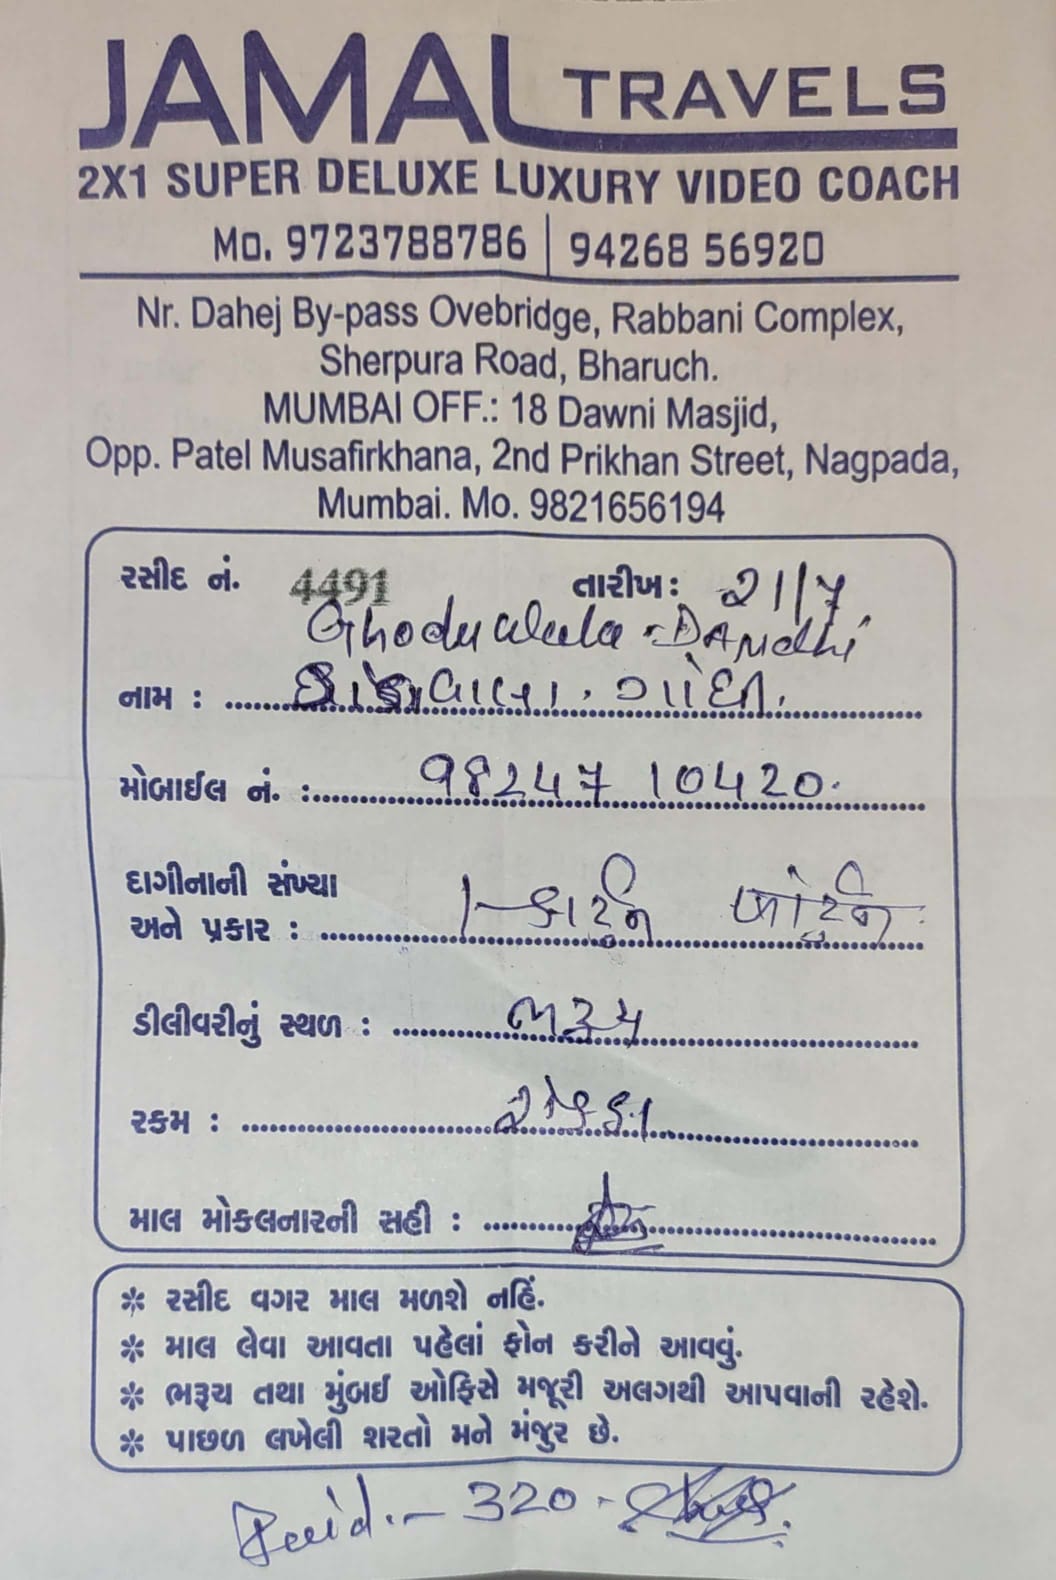 JAMAL TRAVELS
2X1 SUPER DELUXE LUXURY VIDEO COACH
Mo. 9723788786 | 94268 56920
Nr. Dahej By-pass Ovebridge, Rabbani Complex,
Sherpura Road, Bharuch.
MUMBAI OFF.: 18 Dawni Masjid,
Opp. Patel Musafirkhana, 2nd Prikhan Street, Nagpada,
Mumbai. Mo. 9821656194
રસીદ નં. 4491 તારીખ: 21/7
નામ :
મોબાઈલ નં. : 98247 10420.
દાગીનાની સંખ્યા
અને પ્રકાર : 1-કાર્ટુન
ડીલીવરીનું સ્થળ : ભરૂચ
રકમ :
માલ મોકલનારની સહી :
* રસીદ વગર માલ મળશે નહિં.
* માલ લેવા આવતા પહેલાં ફોન કરીને આવવું.
* ભરૂચ તથા મુંબઈ ઓફિસે મજૂરી અલગથી આપવાની રહેશે.
* પાછળ લખેલી શરતો મને મંજુર છે.
Paid.- 320-